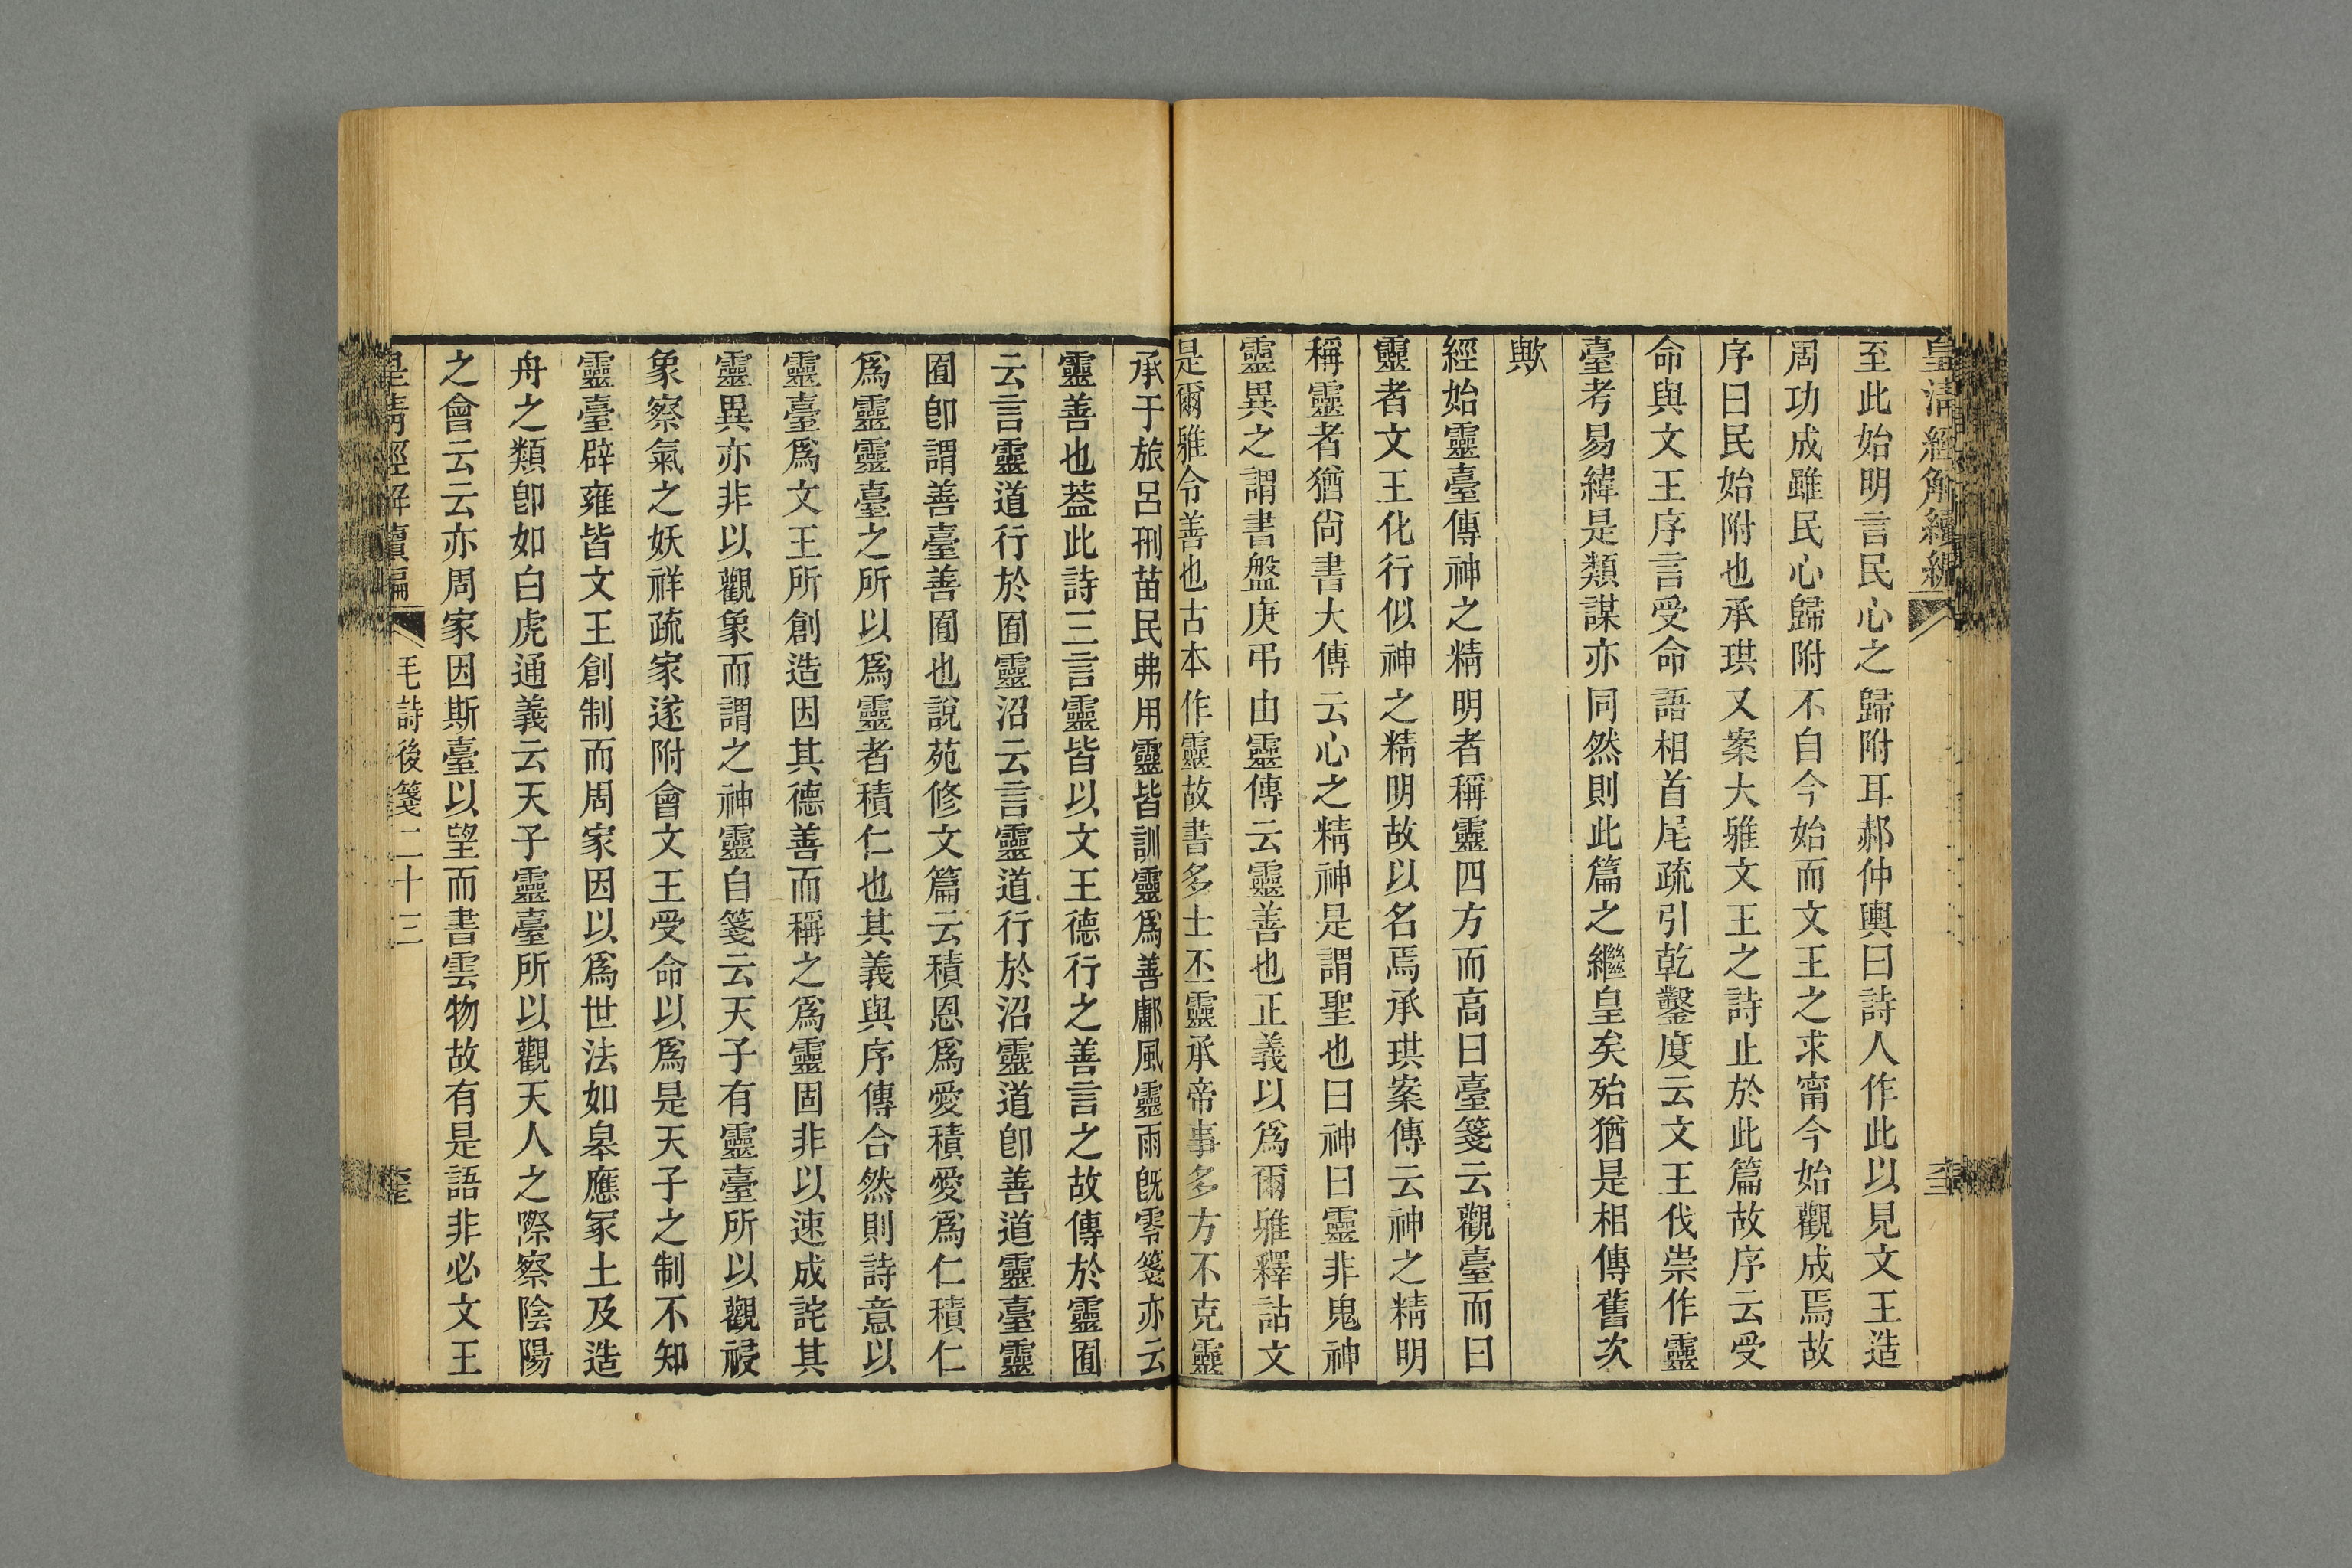 皇清經解續編
至此始明言民心之歸附耳郝仲輿曰詩人作此以見文王造
周功成雖民心歸附不自今始而文王之求甯今始觀成焉故
序曰民始附也承珙又案大雅文王之詩止於此篇故序云受
命與文王序言受命語相首尾疏引乾鑿度云文王伐崇作靈
臺考易緯是類謀亦同然則此篇之繼皇矣殆猶是相傳舊次
歟
經始靈臺傳神之精明者稱靈四方而高曰臺箋云觀臺而曰
靈者文王化行似神之精明故以名焉承珙案傳云神之精明
稱靈者猶尚書大傳云心之精神是謂聖也曰神曰靈非鬼神
靈異之謂書盤庚弔由靈傳云靈善也正義以爲爾雅釋詁文
是爾雅令善也古本作靈故書多士丕靈承帝事多方不克靈
承于旅呂刑苗民弗用靈皆訓靈爲善鄘風靈雨旣零箋亦云
靈善也葢此詩三言靈皆以文王德行之善言之故傳於靈囿
云言靈道行於囿靈沼云言靈道行於沼靈道卽善道靈臺靈
囿卽謂善臺善囿也說苑修文篇云積恩爲愛積愛爲仁積仁
爲靈靈臺之所以爲靈者積仁也其義與序傳合然則詩意以
靈臺爲文王所創造因其德善而稱之爲靈固非以速成詫其
靈異亦非以觀象而謂之神靈自箋云天子有靈臺所以觀祲
象察氣之妖祥疏家遂附會文王受命以爲是天子之制不知
靈臺辟雍皆文王創制而周家因以爲世法如皐應冡土及造
舟之類卽如白虎通義云天子靈臺所以觀天人之際察陰陽
之會云云亦周家因斯臺以望而書雲物故有是語非必文王
皇清經解續編 毛詩後箋二十三